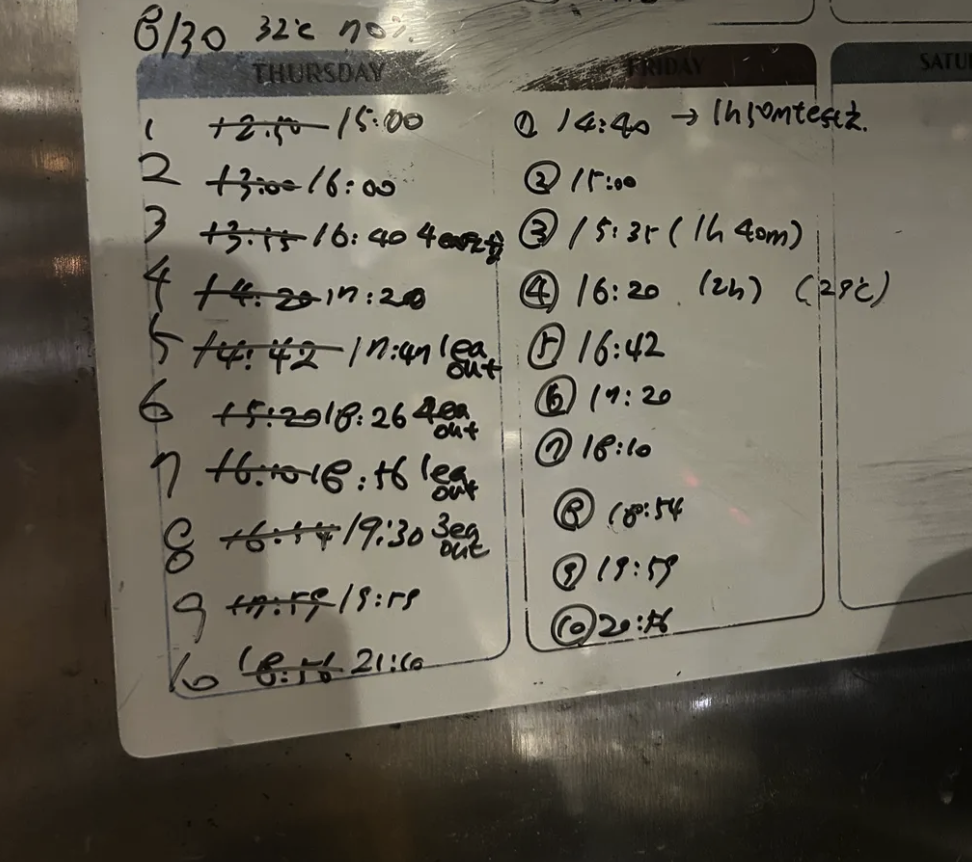 8/30 32℃ 70%
THURSDAY
1 12:50 15:00
2 13:00 16:00
3 13:55 16:40 4ea
4 14:20 17:20
5 14:42 17:47 1ea out
6 15:20 18:26 4ea out
7 16:10 18:56 1ea out
8 16:54 19:30 3ea out
9 17:59 19:59
10 18:56 21:10
FRIDAY
① 14:40 → 1h50m
② 15:00
③ 15:35 (1h 40m)
④ 16:20 (2h) (29℃)
⑤ 16:42
⑥ 17:20
⑦ 18:10
⑧ 18:54
⑨ 19:59
⑩ 20:56